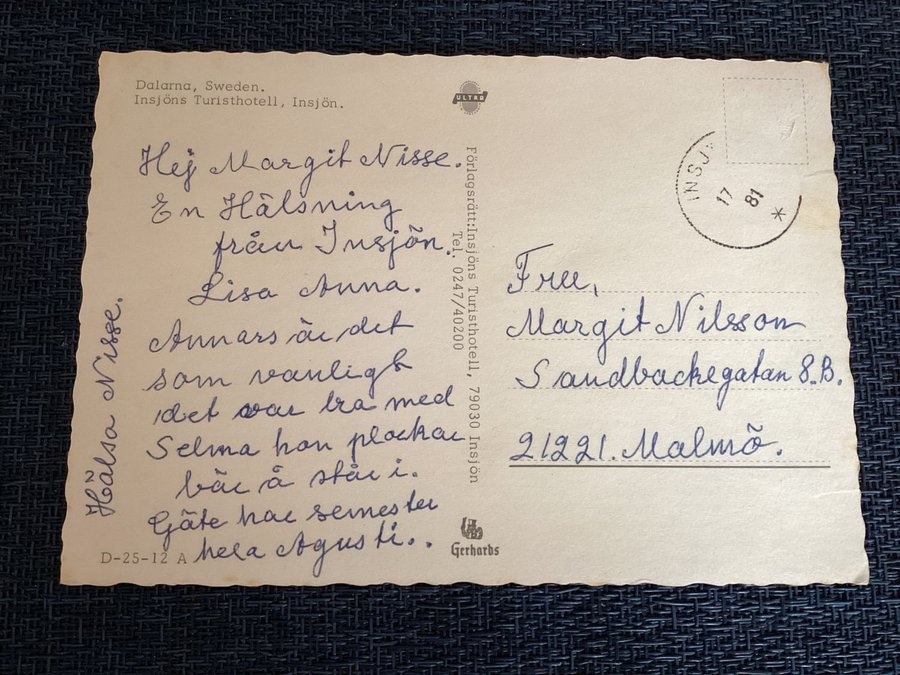 Dalarna, Sweden.
Insjöns Turisthotell, Insjön.
ULTRA
Hej Margit Nisse.
En Hälsning
från Insjön.
Lisa Anna.
Annars är det
som vanligt
det var bra med
Selma hon plockar
bär å står i.
Gäte har semester
hela Agusti..
Hälsa Nisse.
D-25-12 A
Förlagsrätt: Insjöns Turisthotell, 79030 Insjön
Tel. 0247/40200
Gerhards
INSJ
17 81
*
Fru,
Margit Nilsson
Sandbackegatan 8.B.
21221. Malmö.